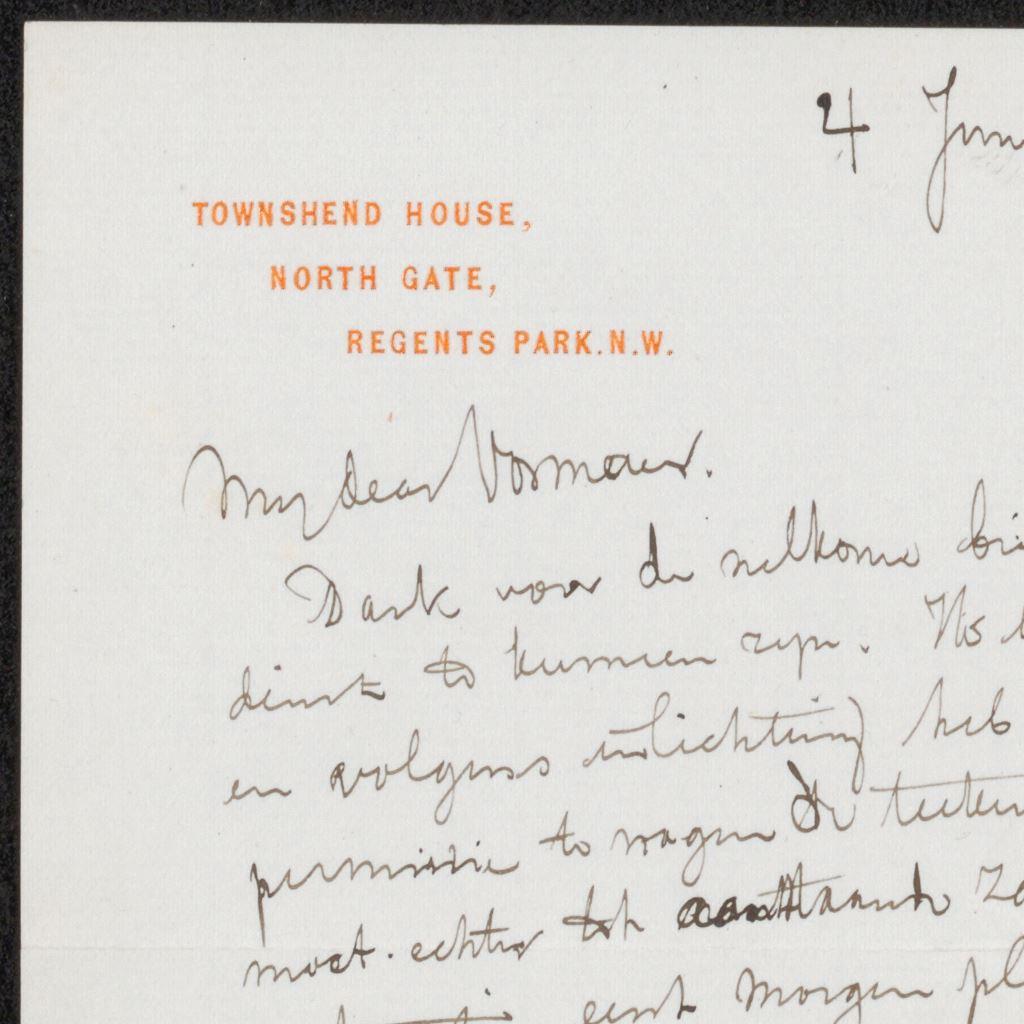 4 Jun
TOWNSHEND HOUSE,
NORTH GATE,
REGENTS PARK.N.W.
My dear Vosmaer.
Dank voor de welkome
dienst te kunnen zyn.
en volgens inlichting heb
permissie te vragen de
moet echter tot aanstaande
eerst morgen